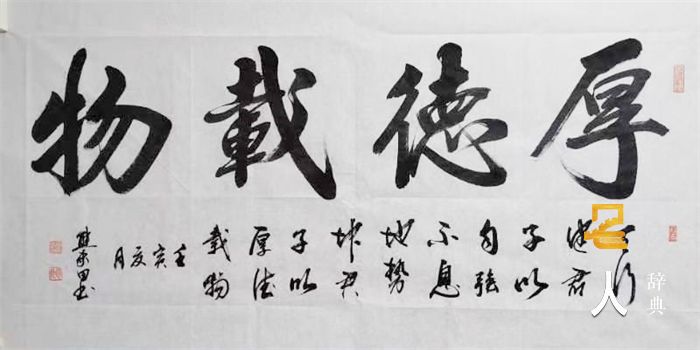 厚德載物
天行
健君
子以
自強
不息
地勢
坤君
子以
厚德
載物
壬寅
夏月
田书
人
辞典